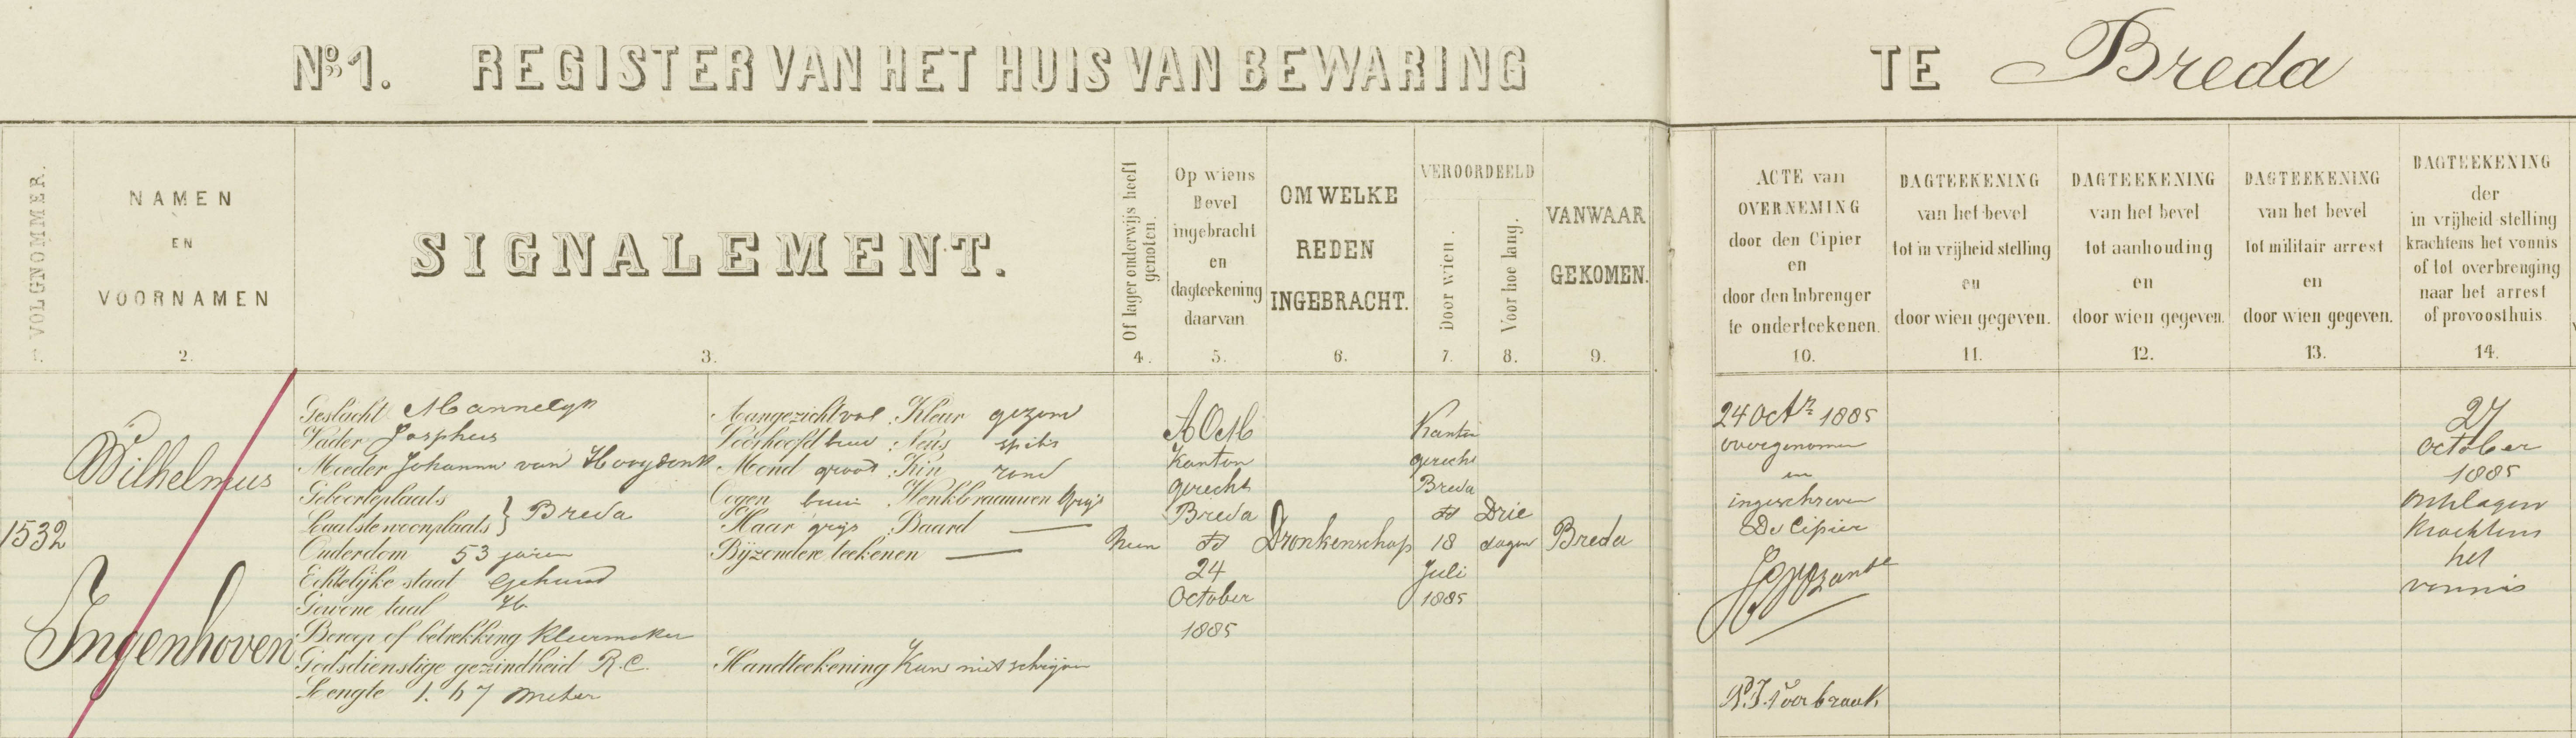 No. 1. REGISTER VAN HET HUIS VAN BEWARING TE Breda
VOLGNOMMER.
1.
NAMEN
EN
VOORNAMEN
2.
SIGNALEMENT.
3.
Of lager onderwijs heeft
genoten.
4.
Op wiens
Bevel
ingebracht
en
dagteekening
daarvan
5.
OM WELKE
REDEN
INGEBRACHT.
6.
VEROORDEELD
Door wien.
7.
Voor hoe lang.
8.
VANWAAR
GEKOMEN.
9.
ACTE van
OVERNEMING
door den Cipier
en
door den Inbrenger
te onderteekenen.
10.
DAGTEEKENING
van het bevel
tot in vrijheid stelling
en
door wien gegeven.
11.
DAGTEEKENING
van het bevel
tot aanhouding
en
door wien gegeven.
12.
DAGTEEKENING
van het bevel
tot militair arrest
en
door wien gegeven.
13.
DAGTEEKENING
der
in vrijheid stelling
krachtens het vonnis
of tot overbrenging
naar het arrest
of provoosthuis
14.
1532
Wilhelmus
Ingenhoven
Geslacht Mannelijk
Vader Josephus
Moeder Johanna van Hooydonk
Geboorteplaats
Laatste woonplaats } Breda
Ouderdom 53 jaren
Echtelijke staat Gehuwd
Gewone taal H.
Beroep of betrekking Kleermaker
Godsdienstige gezindheid R.C.
Lengte 1.67 meter
Aangezicht vol Kleur gezond
Voorhoofd Neus spits
Mond groot Kin rond
Oogen bruin Wenkbraauwen grijs
Haar grijs Baard —
Bijzondere teekenen —
Handteekening Kan niet schrijven
Neen
AOM
Kanton
gerecht
Breda
dd
24
October
1885
Dronkenschap
Kanton
gerecht
Breda
dd
18
Juli
1885
Drie
dagen
Breda
24 Octr 1885
overgenomen
en
ingeschreven
De Cipier
27
October
1885
ontslagen
krachtens
het
vonnis